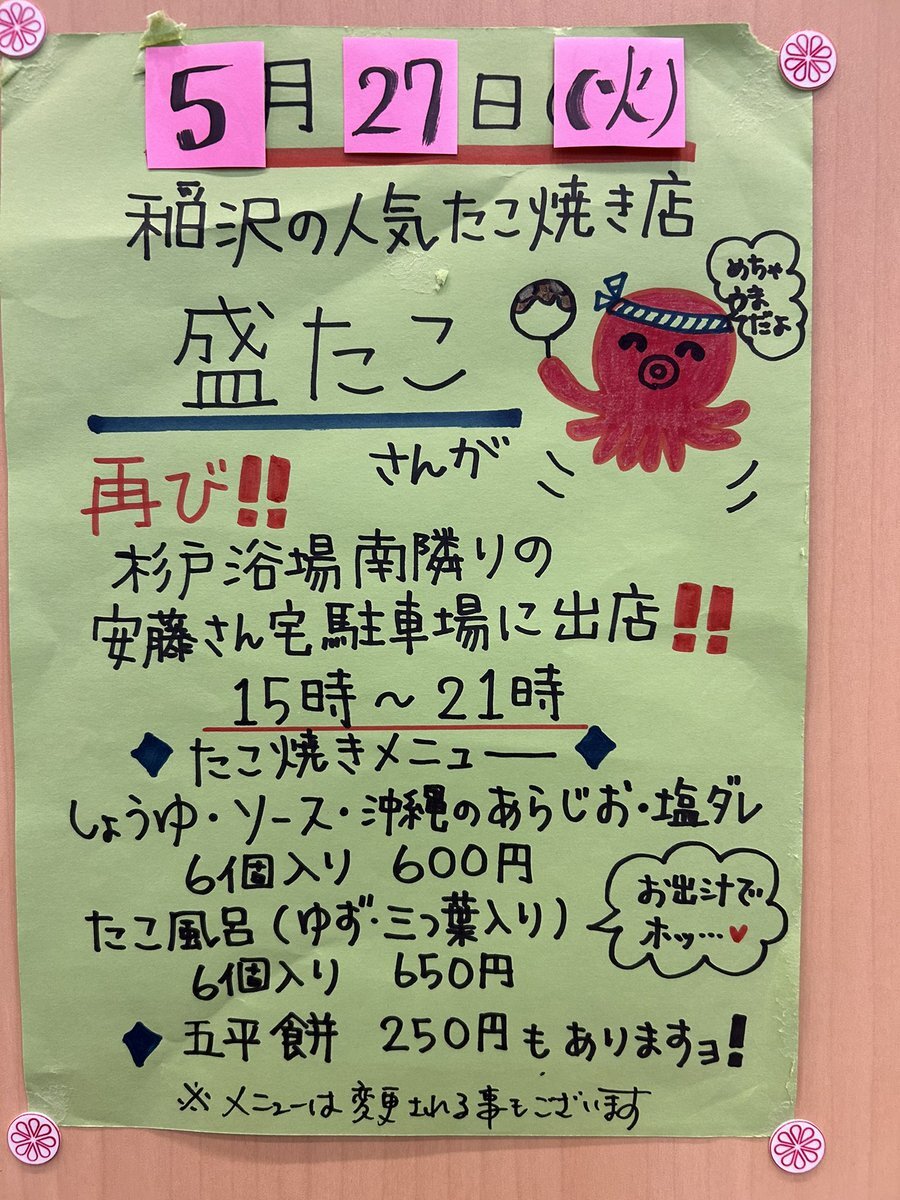 5月27日(火)
稲沢の人気たこ焼き店
めちゃ
うま
だよ
盛たこ
さんが
再び!!
杉戸浴場南隣りの
安藤さん宅駐車場に出店!!
15時〜21時
◆たこ焼きメニュー◆
しょうゆ・ソース・沖縄のあらじお・塩ダレ
6個入り 600円
たこ風呂(ゆず・三つ葉入り)
6個入り 650円
お出汁で
ホッ…♥
◆五平餅 250円もありますョ!
※メニューは変更される事もございます